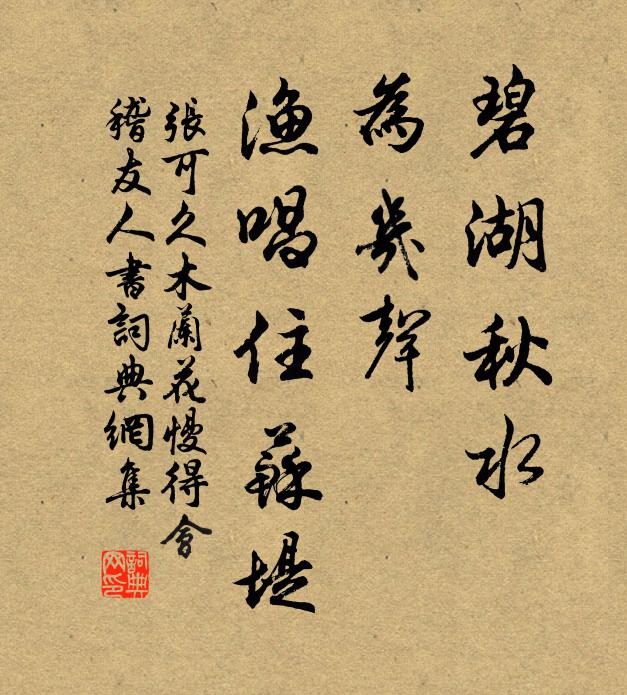 碧湖秋水
為幾聲
漁唱住蘇堤
張可久木蘭花慢得會
稽友人書詞典網集
詞典
网印